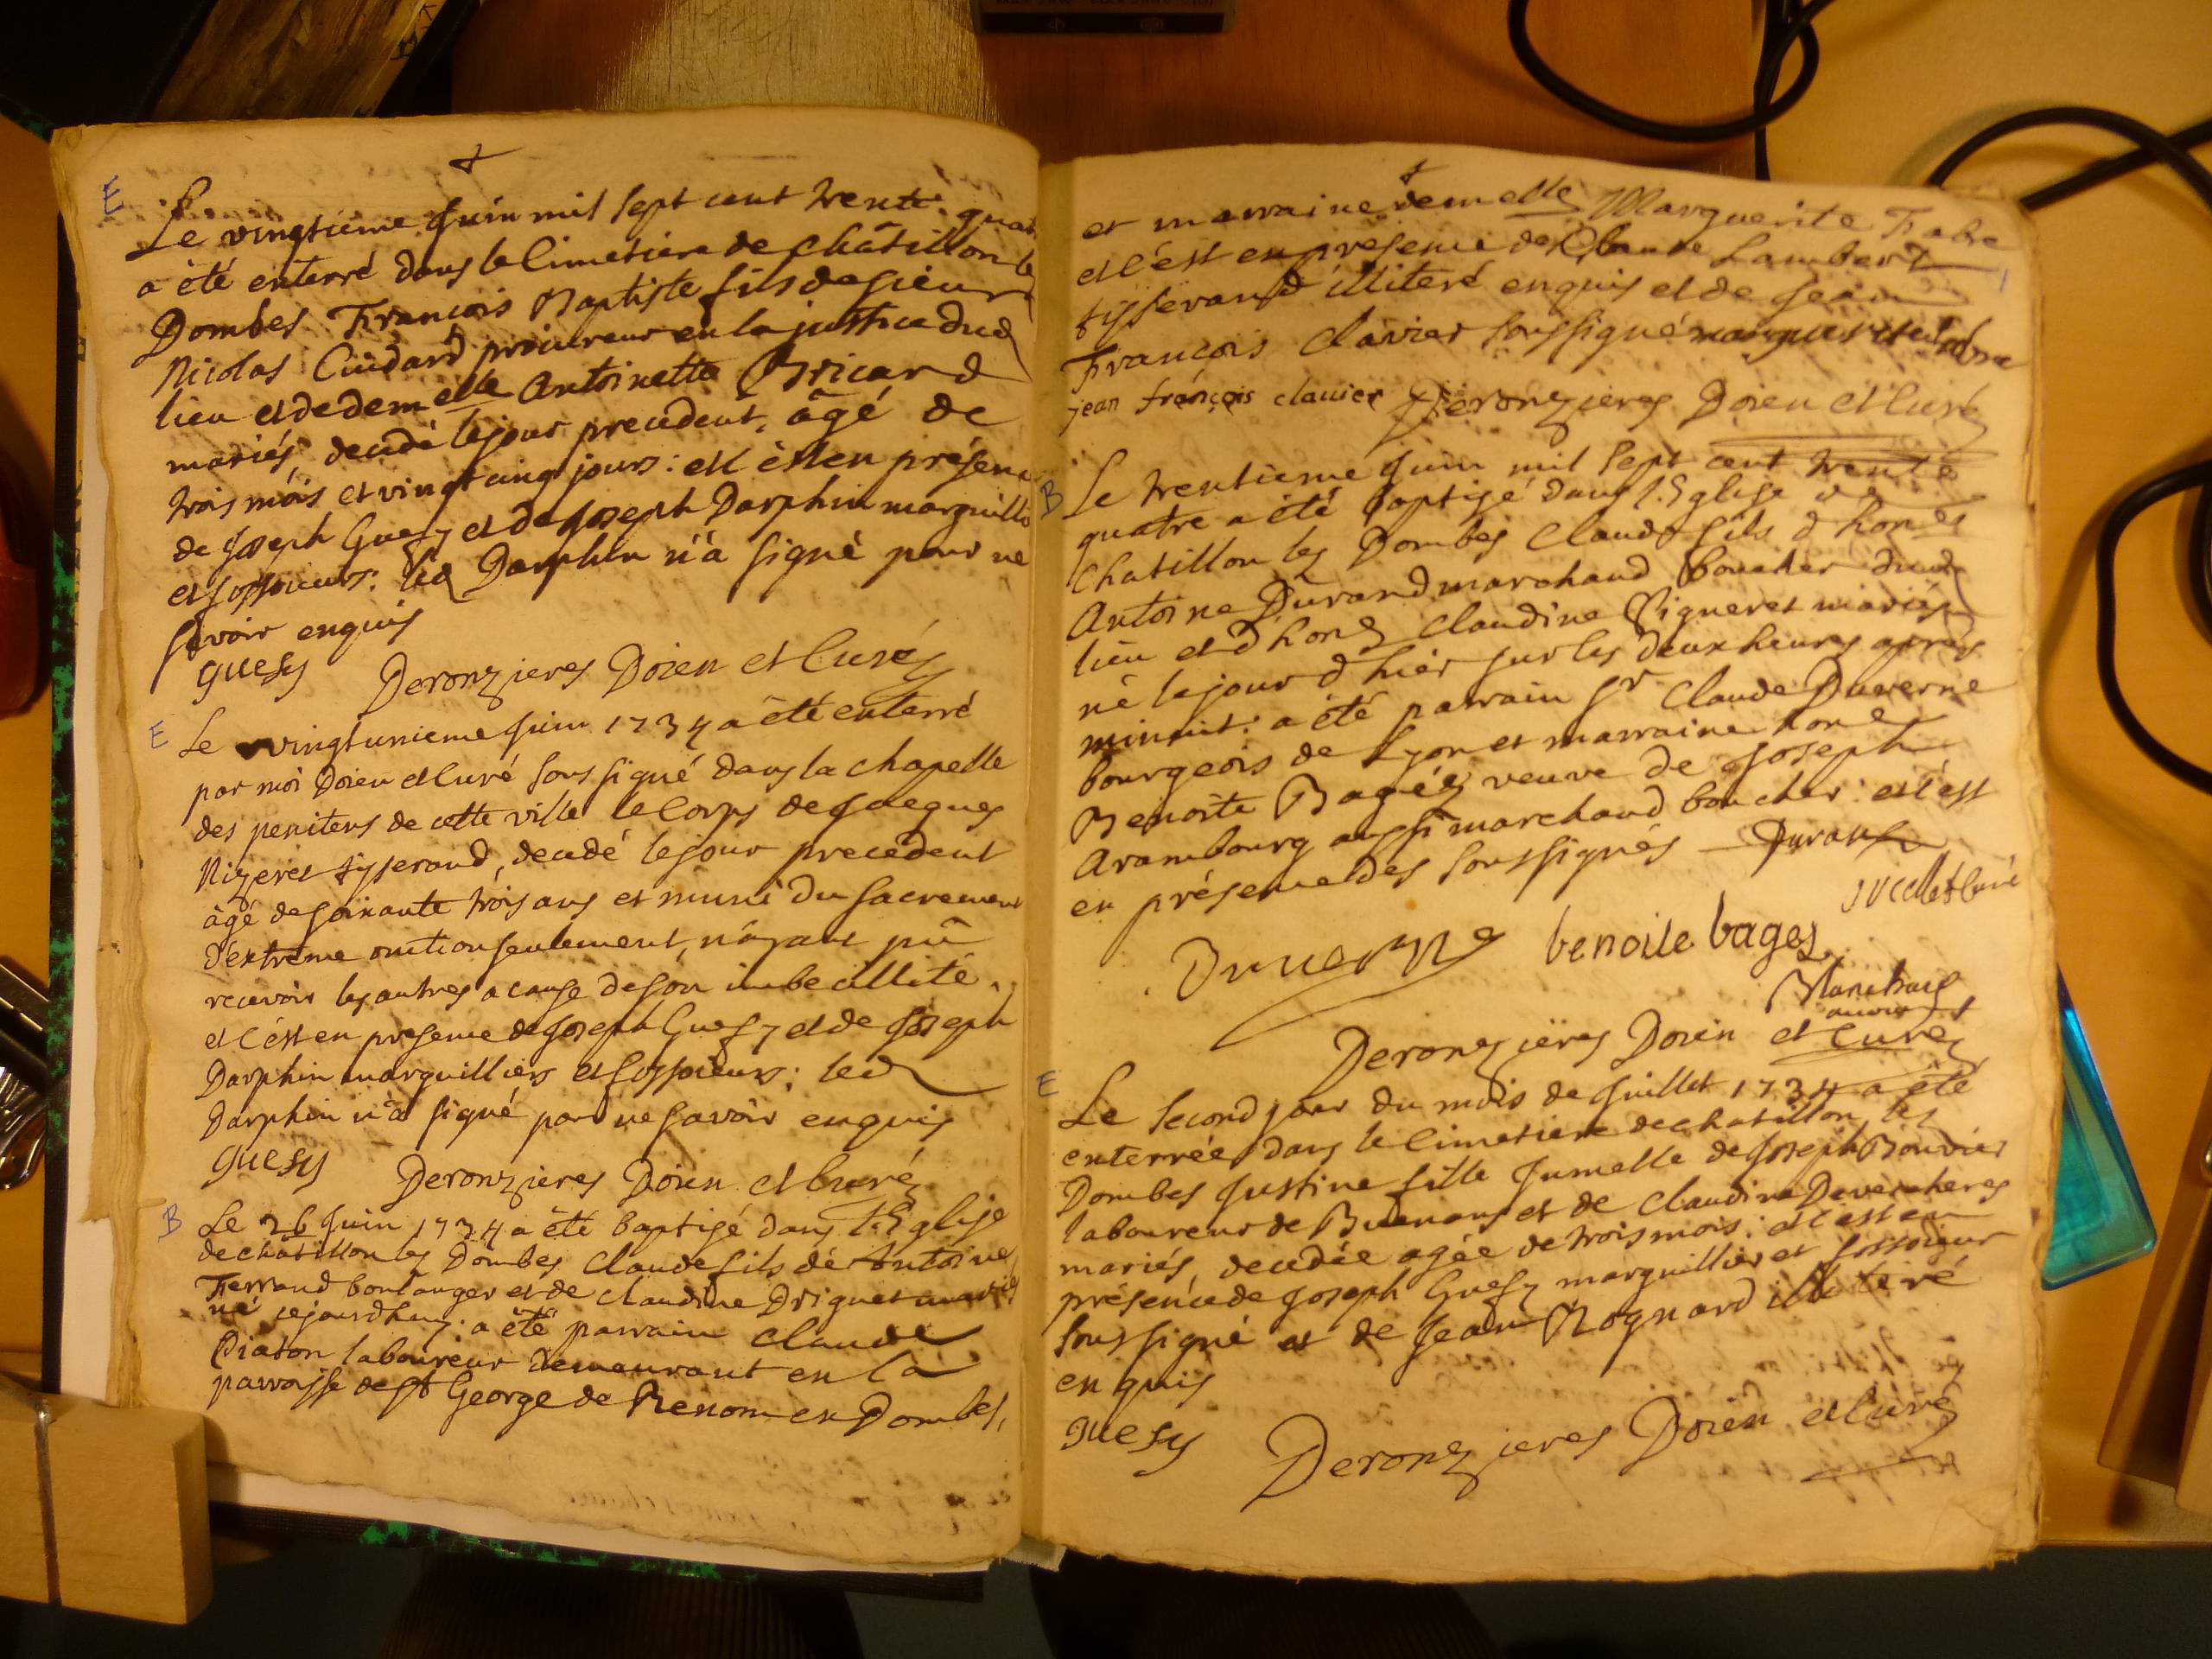 E
Le vingtième Juin mil sept cent trente quat
a été enterré dans le Cimetiere de Châtillon les
Dombes François Baptiste fils de sieur
Nicolas Cindard procureur en la justice dud
lieu et de demelle Antoinette Bricard
mariés, decedé le jour precedent, âgé de
trois mois et vingt cinq jours: et c'est en présence
de Joseph Guesy et de Joseph Darphin marguilli
et fossoieurs: led Darphin n'a signé pour ne
savoir enquis
guesy Deronzieres Doien et Curé
E
Le vingtunieme Juin 1734 a été enterré
par moi Doien et Curé soussigné dans la chapelle
des penitens de cette ville le Corps de Jacques
Nizeret tisserand, decedé le jour precedent
âgé de soixante trois ans et muni du sacrement
d'extrème onction seulement, n'ayant pû
recevoir les autres a cause de son imbecillité,
et c'est en presence de Joseph Guesy et de Joseph
Darphin marguilliers et fossoieurs; led
Darphin n'a signé pour ne savoir enquis
guesy Deronzieres Doien et Curé
B
Le 26 Juin 1734 a été baptisé dans l'Eglise
de châtillon les Dombes Claude fils de Antoine
Ferrand boulanger et de Claudine Driguet mariés
né cejourdhuy: a été parrain Claude
Piaton laboureur demeurant en la
parroisse de St George de Renom en Dombes,
et marraine demelle Marguerite Fabre
et c'est en presence de Claude Lambert
tisserand illiteré enquis et de Jean
François Clavier soussigné marguerite fabre
jean françois clauier Deronzieres Doien et Curé
B
Le trentieme Juin mil sept cent trente
quatre a été baptisé dans l'Eglise de
Chatillon les Dombes Claude fils d'hones
Antoine Durand marchand boucher dud
lieu et d'hone Claudine Vigneret mariés
né le jour d'hier sur les deux heures après
minuit: a été parrain Sr Claude Duverne
bourgeois de Lyon et marraine hone
Benoite Bagés veuve de Joseph
Arambourg aussi marchand boucher: et c'est
en présence des soussignés Durand
Duuerne benoite bages
Deronzieres Doien et Curé
E
Le second jour du mois de Juillet 1734 a été
enterrée dans le Cimetiere de chatillon les
Dombes Justine fille Jumelle de Joseph Bouvier
laboureur de Buenans et de Claudine Deverchere
mariés, decedée agée de trois mois: et c'est en
présence de Joseph Guesy marguillier et fossoieur
soussigné et de Jean Rognard illiteré
enquis
guesy Deronzieres Doien et Curé